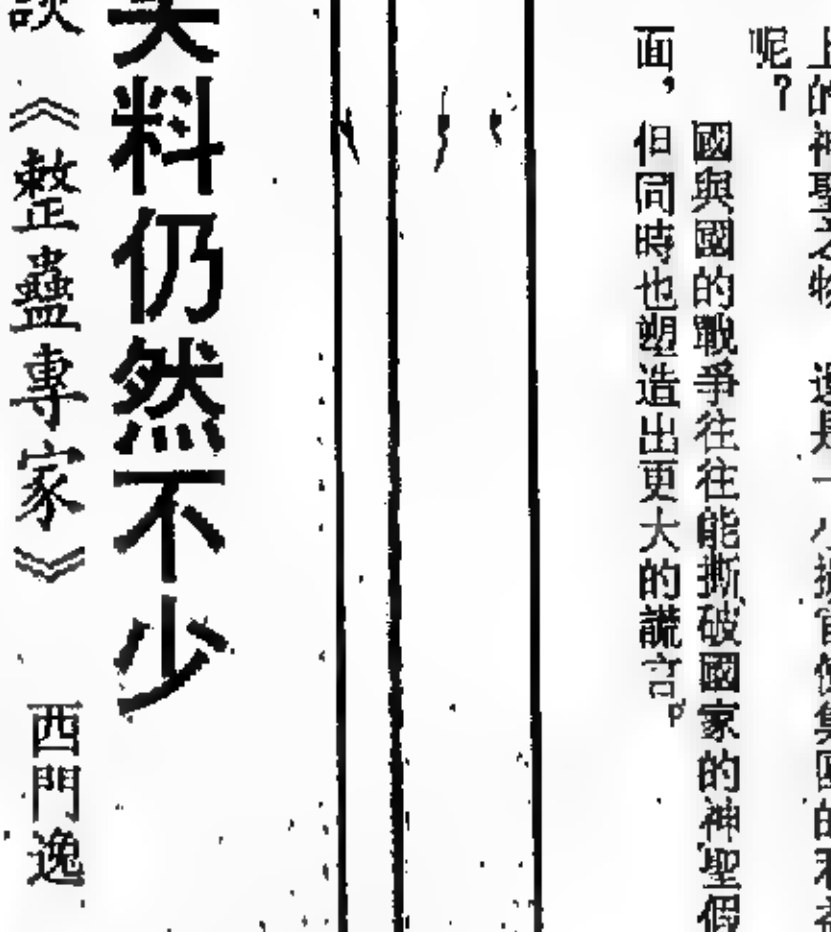 的神聖之物
呢？
國與國的戰爭往往能撕破國家的神聖假
面，但同時也塑造出更大的謊言。
料仍然不少
談《整蠱專家》 西門逸